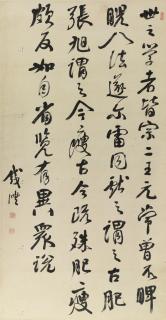 世之学者皆宗二王元常曾不睥
睨八法遂尔雷同献之谓之古肥
張旭谓之今瘦古今既殊肥瘦
頗反如自省覧有異眾説
錢灃